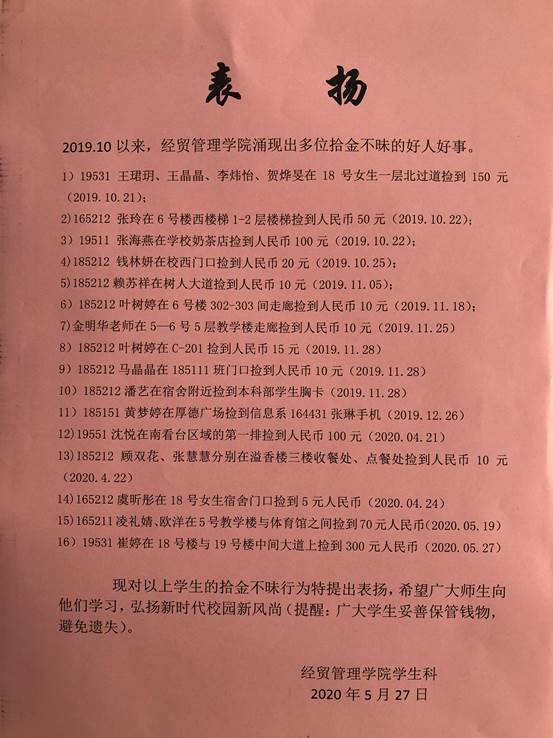 表 扬
2019.10 以来，经贸管理学院涌现出多位拾金不昧的好人好事。
1）19531 王珺玥、王晶晶、李炜怡、贺烨旻在 18 号女生一层北过道捡到 150 元
（2019.10.21）；
2)165212 张玲在 6 号楼西楼梯 1-2 层楼梯捡到人民币 50 元（2019.10.22）；
3）19511 张海燕在学校奶茶店捡到人民币 100 元（2019.10.22）；
4)185212 钱林妍在校西门口捡到人民币 20 元（2019.10.25）；
5)185212 赖苏祥在树人大道捡到人民币 10 元（2019.11.05）；
6）185212 叶树婷在 6 号楼 302-303 间走廊捡到人民币 10 元（2019.11.18）；
7)金明华老师在 5—6 号 5 层教学楼走廊捡到人民币 10 元（2019.11.25）
8）185212 叶树婷在 C-201 捡到人民币 15 元（2019.11.28）
9）185212 马晶晶在 185111 班门口捡到人民币 10 元（2019.11.28）
10）185212 潘艺在宿舍附近捡到本科部学生胸卡（2019.11.28）
11）185151 黄梦婷在厚德广场捡到信息系 164431 张琳手机（2019.12.26）
12)19551 沈悦在南看台区域的第一排捡到人民币 100 元（2020.04.21）
13)185212 顾双花、张慧慧分别在溢香楼三楼收餐处、点餐处捡到人民币 10 元
（2020.4.22）
14)165212 虞昕彤在 18 号女生宿舍门口捡到 5 元人民币（2020.04.24）
15)165211 凌礼婧、欧洋在 5 号教学楼与体育馆之间捡到 70 元人民币（2020.05.19）
16）19531 崔婷在 18 号楼与 19 号楼中间大道上捡到 300 元人民币（2020.05.27）
现对以上学生的拾金不昧行为特提出表扬，希望广大师生向
他们学习，弘扬新时代校园新风尚（提醒：广大学生妥善保管钱物，
避免遗失）。
经贸管理学院学生科
2020 年 5 月 27 日